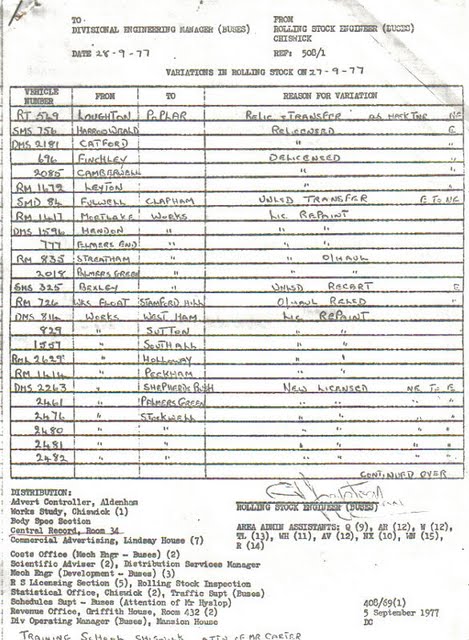 TO FROM
DIVISIONAL ENGINEERING MANAGER (BUSES) ROLLING STOCK ENGINEER (BUSES)
CHISWICK
DATE 28-9-77 REF: 508/1
VARIATIONS IN ROLLING STOCK ON 27-9-77
VEHICLE NUMBER FROM TO REASON FOR VARIATION
RT 549 LOUGHTON POPLAR RELIC & TRANSFER AS MECH TNR NE
SMS 756 HARROW WEALD RELICENSED E
DMS 2181 CATFORD " "
696 FINCHLEY DELICENSED E
2085 CAMBERWELL " "
RM 1672 LEYTON "
SMD 84 FULWELL CLAPHAM UNLSD TRANSFER E TO NE
RM 1417 MORTLAKE WORKS LIC REPAINT
DMS 1596 HENDON " " "
777 ELMERS END " " "
RM 835 STREATHAM " " O/HAUL
2018 PALMERS GREEN " " "
SMS 325 BEXLEY " UNLSD RECERT E
RM 726 WKS FLOAT STAMFORD HILL O/HAUL RELSD
DMS 814 WORKS WEST HAM LIC REPAINT
829 " SUTTON " "
1557 " SOUTHALL " "
RML 2627 " HOLLOWAY " "
RM 1414 " PECKHAM " "
DMS 2263 " SHEPHERDS BUSH NEW LICENSED NE TO E
2461 " PALMERS GREEN " " "
2476 " STOCKWELL " " "
2480 " " " " "
2481 " " " " "
2482 " " " " "
CONTINUED OVER
DISTRIBUTION:
Advert Controller, Aldenham
Works Study, Chiswick (1)
ROLLING STOCK ENGINEER (BUSES)
Body Spec Section
Central Record, Room 34
Commercial Advertising, Lindsay House (7)
AREA ADMIN ASSISTANTS: Q (9), AR (12), W (12),
TL (13), WH (11), AV (12), HX (10), WN (15),
R (14)
Costs Office (Mech Engr - Buses) (2)
Scientific Adviser (2), Distribution Services Manager
Mech Engr (Development - Buses) (3)
R S Licensing Section (5), Rolling Stock Inspection
Statistical Office, Chiswick (2), Traffic Supt (Buses)
Schedules Supt - Buses (Attention of Mr Hyslop) 408/69(1)
Revenue Office, Griffith House, Room 432 (2) 5 September 1977
Div Operating Manager (Buses), Mansion House DC
TRAINING SCHOOL CHISWICK ATTN OF MR CARTER